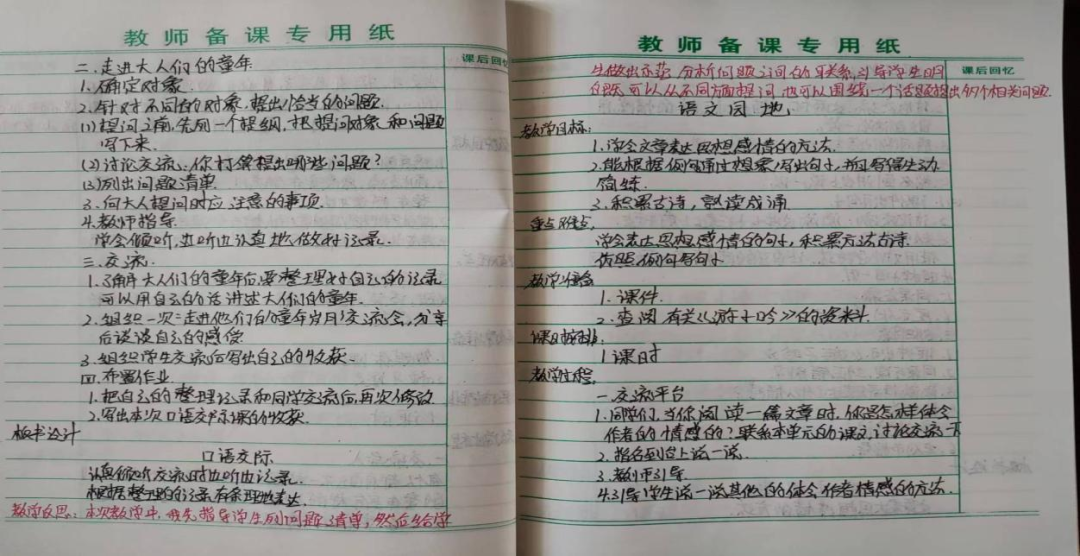 教师备课专用纸
课后回忆
二.走进大人们的童年
1.确定对象
2.针对不同的对象,提出恰当的问题.
(1)提问之前,先列一个提纲,根据提问对象和问题
写下来.
(2)讨论交流:你打算提出哪些问题?
(3)列出问题清单.
3.向大人提问时应注意的事项.
4.教师指导.
学会倾听,边听边认真地做好记录.
三.交流.
1.了解大人们的童年后,要整理好自己的记录
可以用自己的话讲述大人们的童年.
2.组织一次"走进他们的童年岁月"交流会,分享
后谈谈自己的感受
3.组织学生交流后写出自己的收获.
四.布置作业.
1.把自己的整理记录和同学交流后,再次修改
2.写出本次口语交际课的收获.
板书设计
口语交际
认真倾听交流时边听边记录.
根据整理的记录有条理地表达.
教学反思:本次教学中,我先指导学生列问题清单,然后给学
教师备课专用纸
课后回忆
生做出示范,分析问题之间的联系,引导学生明
白既可以从不同方面提问,也可以围绕一个话题提出几个相关问题.
语文园地
教学目标:
1.学会文章表达思想感情的方法.
2.能根据例句通过想象,写出句子,并且写得生动
简练.
3.积累古诗,熟读成诵
重点难点:
学会表达思想感情的句子,积累方法古诗
仿照例句写句子
教学准备:
1.课件.
2.查阅有关《游子吟》的资料.
课时安排:
1课时
教学过程:
一.交流平台
1.同学们,当你阅读一篇文章时,你是怎样体会
作者的情感的?联系本单元的课文,讨论交流一下
2.指名到台上说一说.
3.教师引导.
4.引导学生说一说其他的体会作者情感的方法.